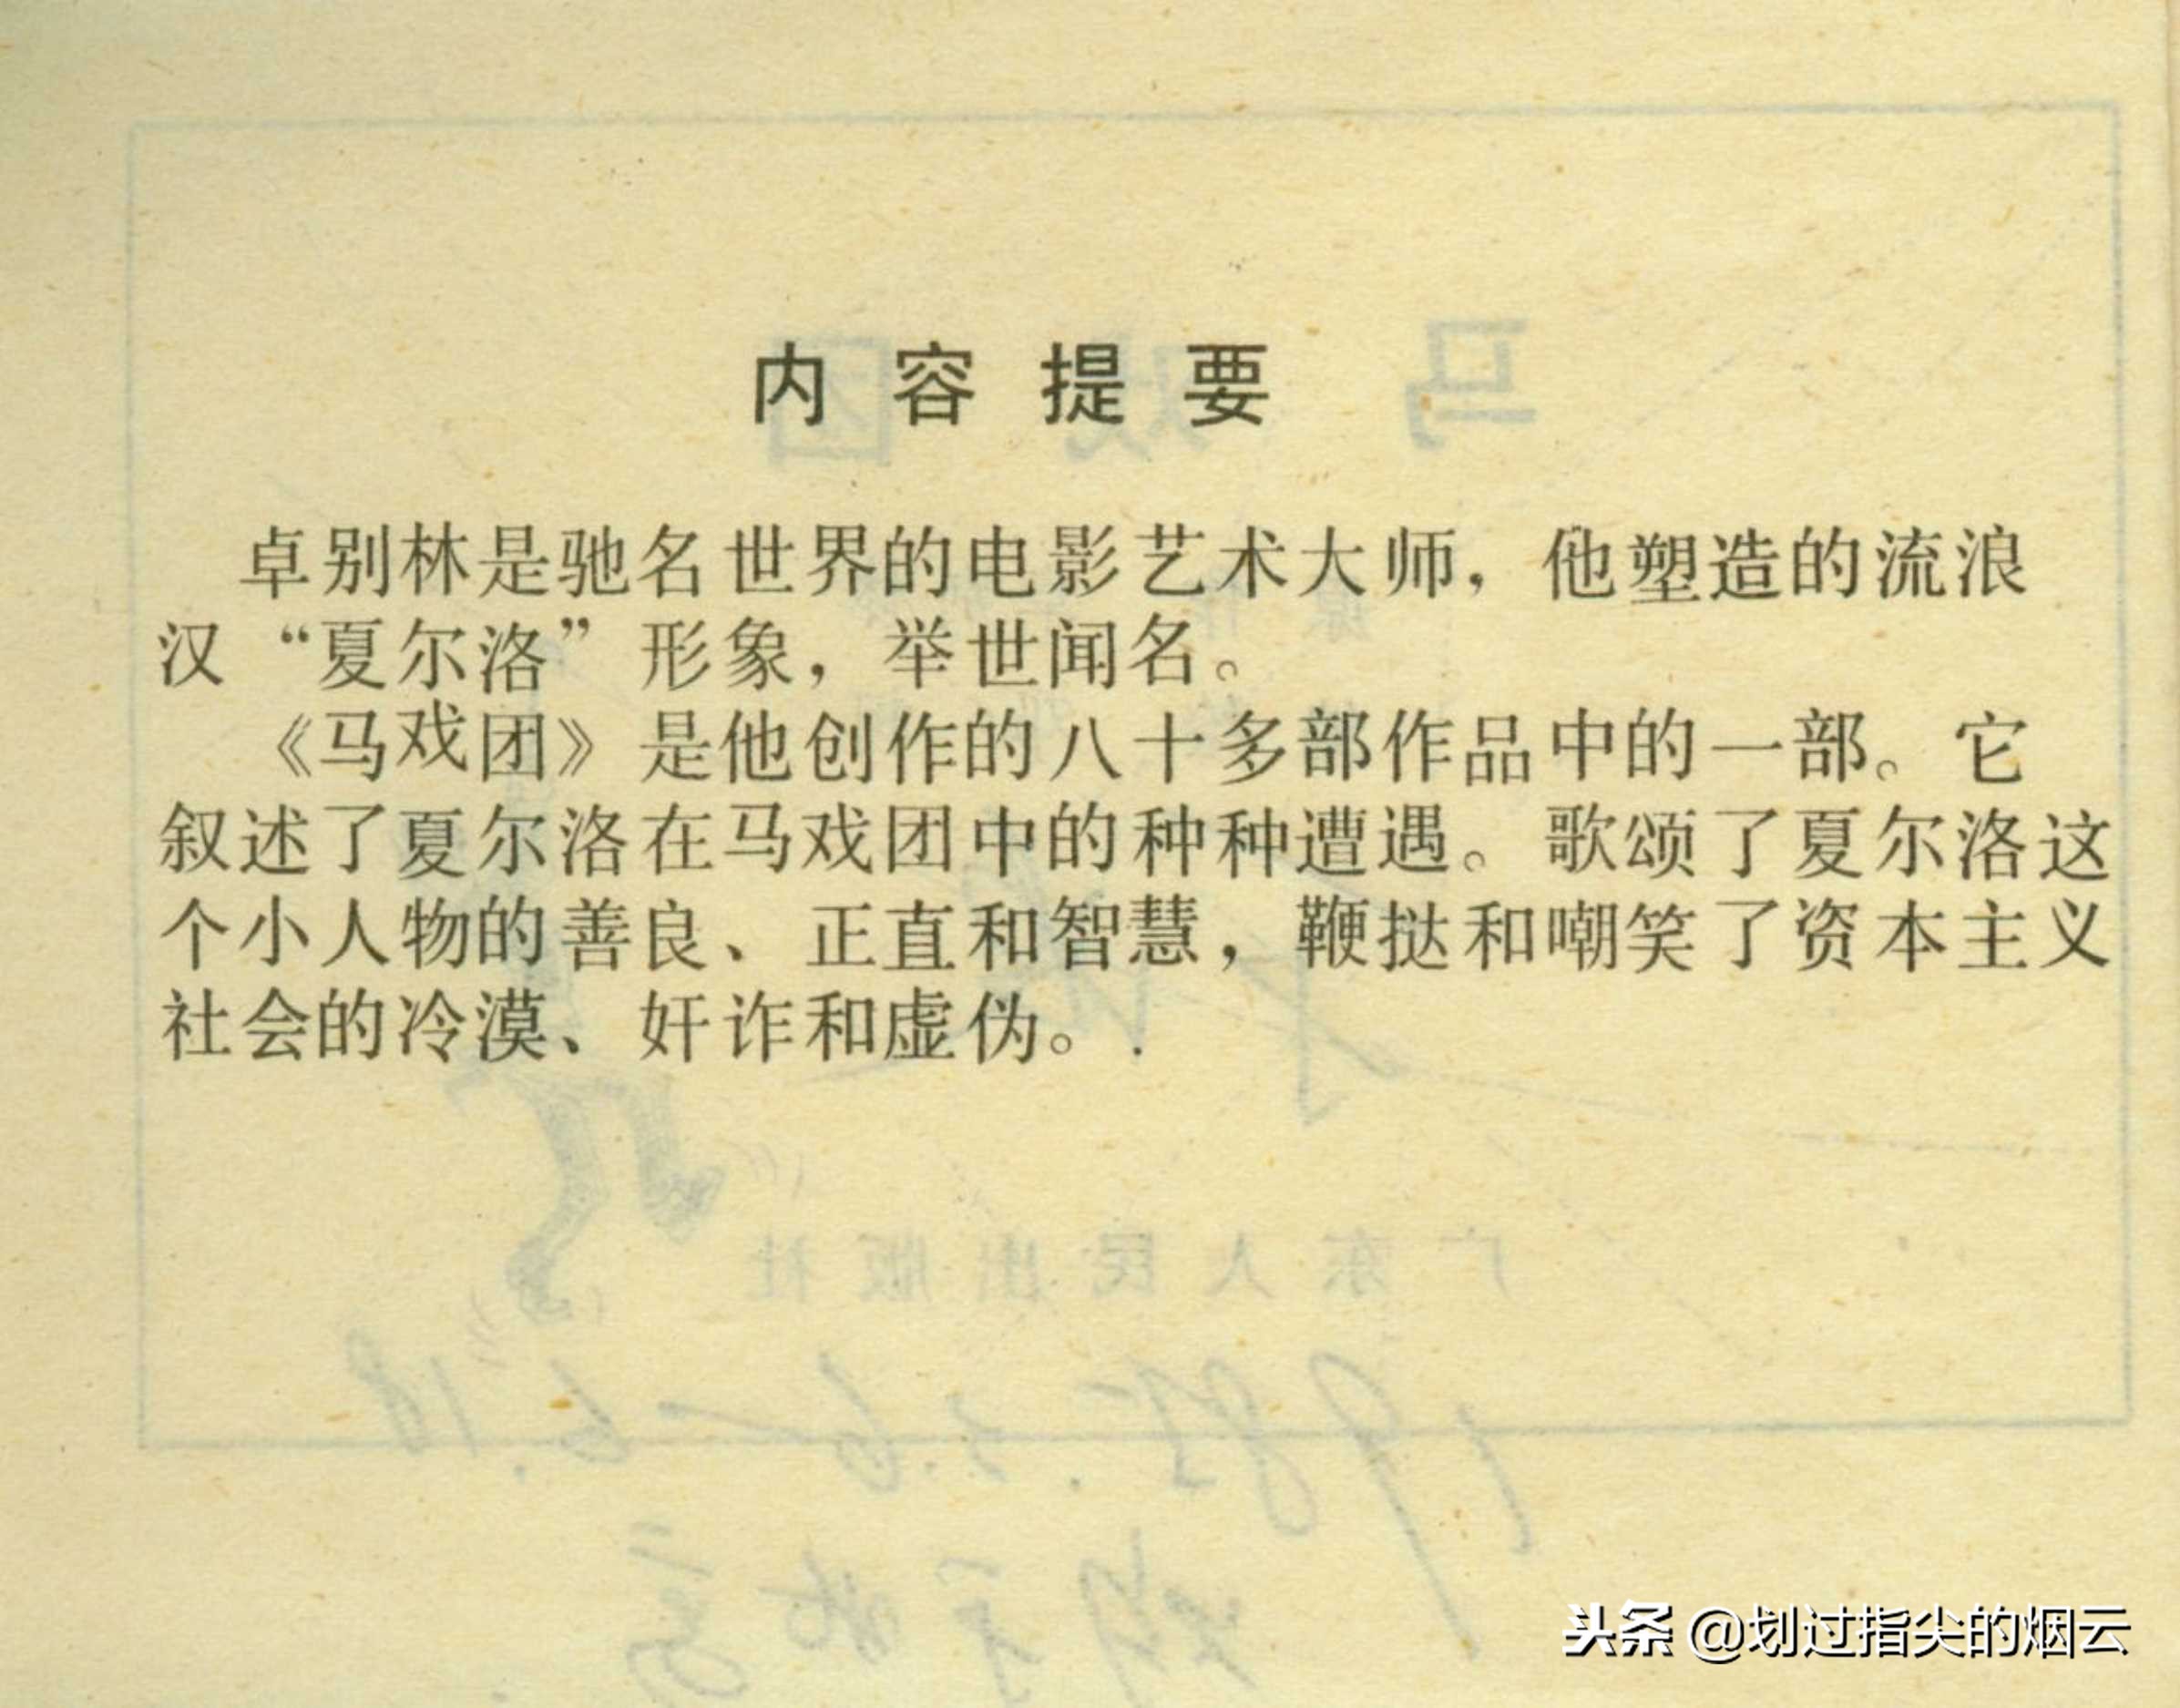 内容提要
卓别林是驰名世界的电影艺术大师，他塑造的流浪
汉“夏尔洛”形象，举世闻名。
《马戏团》是他创作的八十多部作品中的一部。它
叙述了夏尔洛在马戏团中的种种遭遇。歌颂了夏尔洛这
个小人物的善良、正直和智慧，鞭挞和嘲笑了资本主义
社会的冷漠、奸诈和虚伪。
广东人民出版社
头条 @划过指尖的烟云